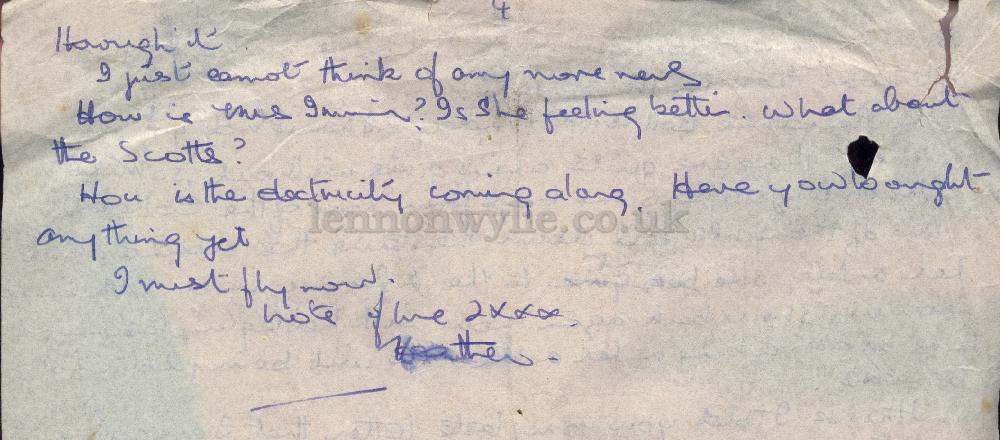 4
through it.
I just cannot think of any more news
How is Mrs Irwin? Is She feeling better. What about
the Scotts?
How is the electricity coming along. Have you bought
anything yet
I must fly now.
lots of love 2xxxx.
Heather.
lennonwylie.co.uk